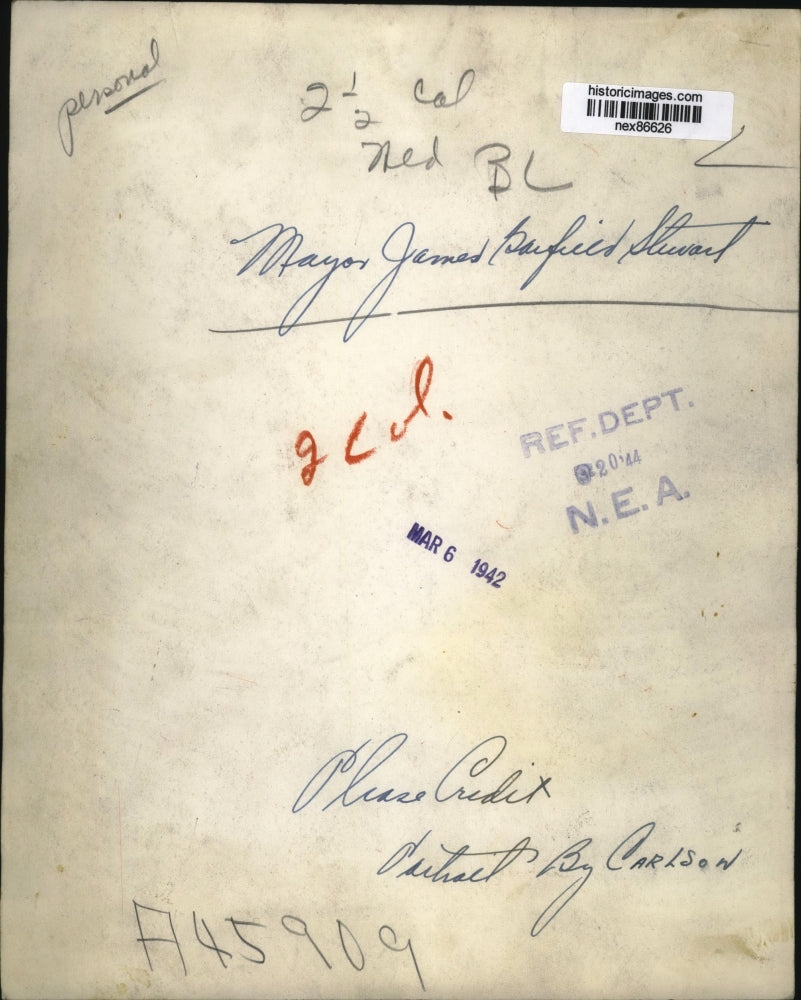 personal
2 1/2 Col
historicimages.com
nex86626
Ned BL
Mayor James Garfield Stewart
2 Col.
REF. DEPT.
20 '44
N.E.A.
MAR 6 1942
Please Credit
Portrait By CARLSON
A45909